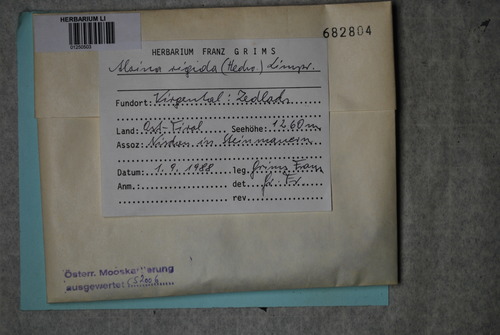 HERBARIUM LI
01250503
682804
HERBARIUM FRANZ GRIMS
Aloina rigida (Hedw.) Limpr.
Fundort: Virgental: Zedlach
Land: Ost-Tirol Seehöhe: 1260m
Assoz: Nischen in Steinmauern
Datum: 1. 9. 1988 leg. Grims Franz
Anm. det. Gr. Fr.
rev.
Österr. Mooskartierung
ausgewertet